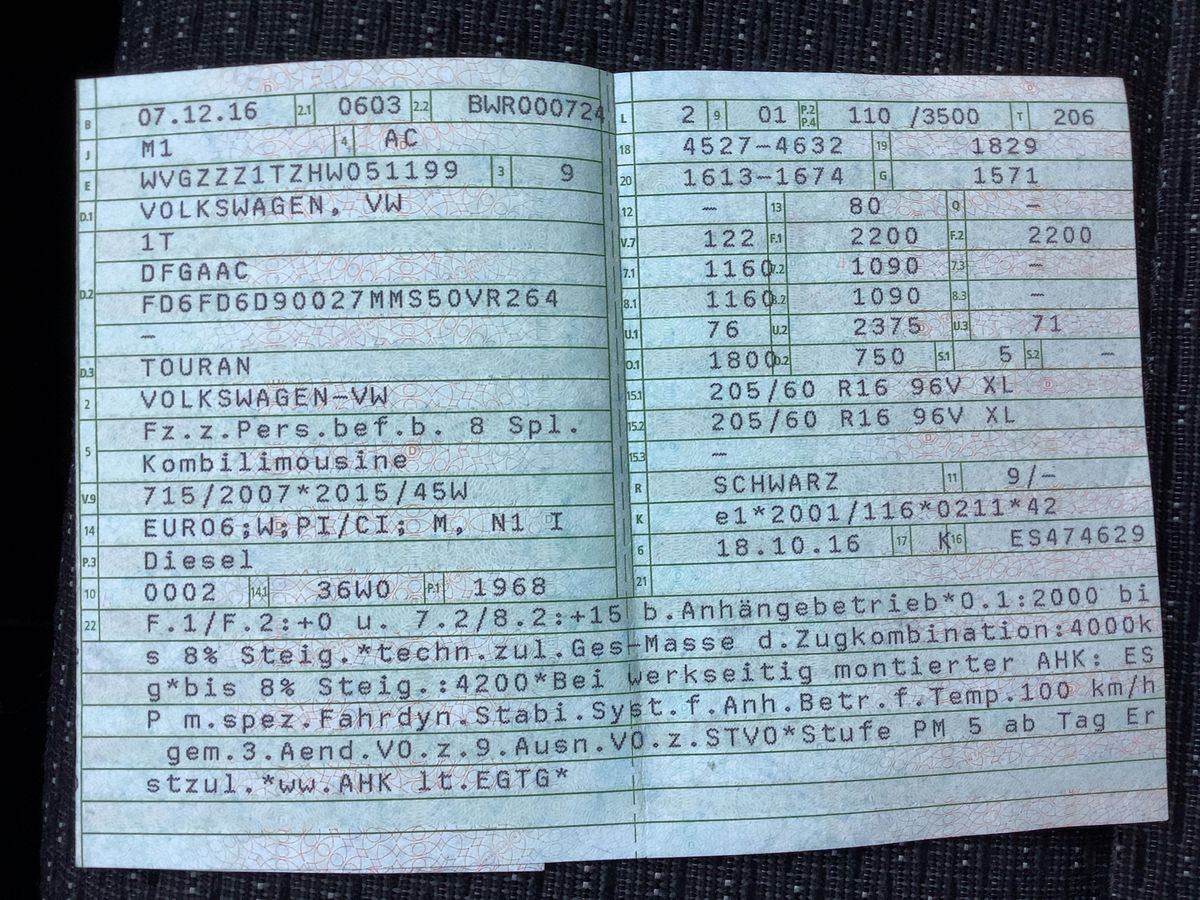 B 07.12.16 2.1 0603 2.2 BWR000724
J M1 4 AC
E WVGZZZ1TZHW051199 3 9
D.1 VOLKSWAGEN, VW
1T
D.2 DFGAAC
FD6FD6D90027MMS50VR264
–
D.3 TOURAN
2 VOLKSWAGEN-VW
5 Fz.z.Pers.bef.b. 8 Spl.
Kombilimousine
V.9 715/2007*2015/45W
14 EURO6;W;PI/CI; M, N1 I
P.3 Diesel
10 0002 14.1 36W0 P.1 1968
L 2 9 01 P.2 P.4 110 /3500 T 206
18 4527-4632 19 1829
20 1613-1674 G 1571
12 – 13 80 Q –
V.7 122 F.1 2200 F.2 2200
7.1 1160 7.2 1090 7.3 –
8.1 1160 8.2 1090 8.3 –
U.1 76 U.2 2375 U.3 71
O.1 1800 O.2 750 S.1 5 S.2 –
15.1 205/60 R16 96V XL
15.2 205/60 R16 96V XL
15.3 –
R SCHWARZ 11 9/–
K e1*2001/116*0211*42
6 18.10.16 17 K 16 ES474629
21
22 F.1/F.2:+0 u. 7.2/8.2:+15 b.Anhängebetrieb*O.1:2000 bi
s 8% Steig.*techn.zul.Ges-Masse d.Zugkombination:4000k
g*bis 8% Steig.:4200*Bei werkseitig montierter AHK: ES
P m.spez.Fahrdyn.Stabi.Syst.f.Anh.Betr.f.Temp.100 km/h
gem.3.Aend.VO.z.9.Ausn.VO.z.STVO*Stufe PM 5 ab Tag Er
stzul.*ww.AHK lt.EGTG*